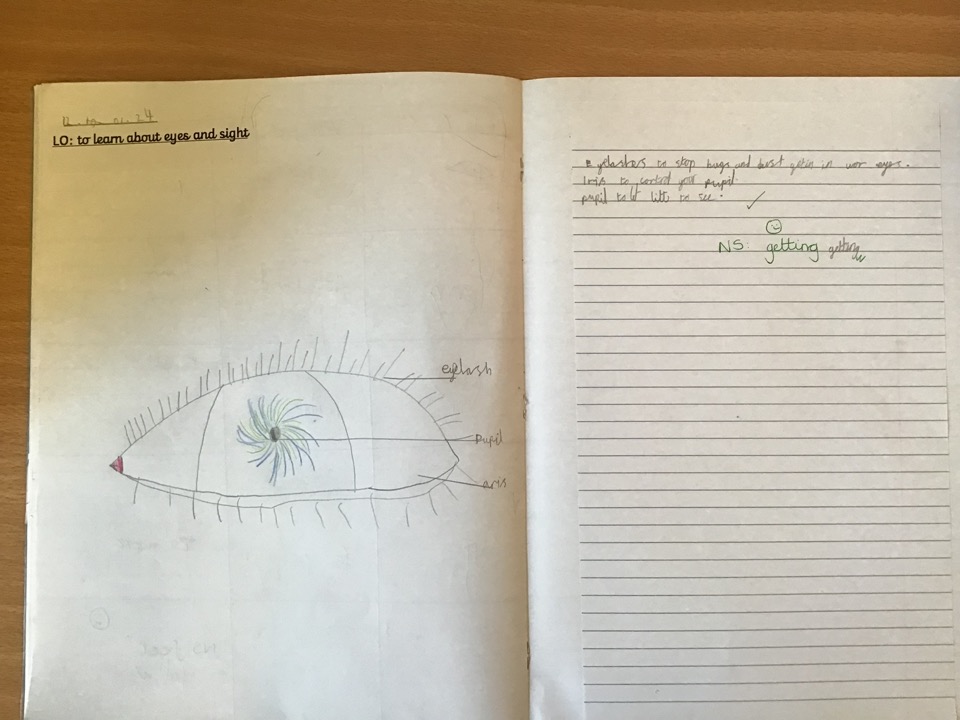 LO: to learn about eyes and sight
eyelash
pupil
aris
Eyelashers to stop bugs and dust getin in wor eyes.
Iris to control your pupil.
pupil to let litt to see.
NS: getting getting